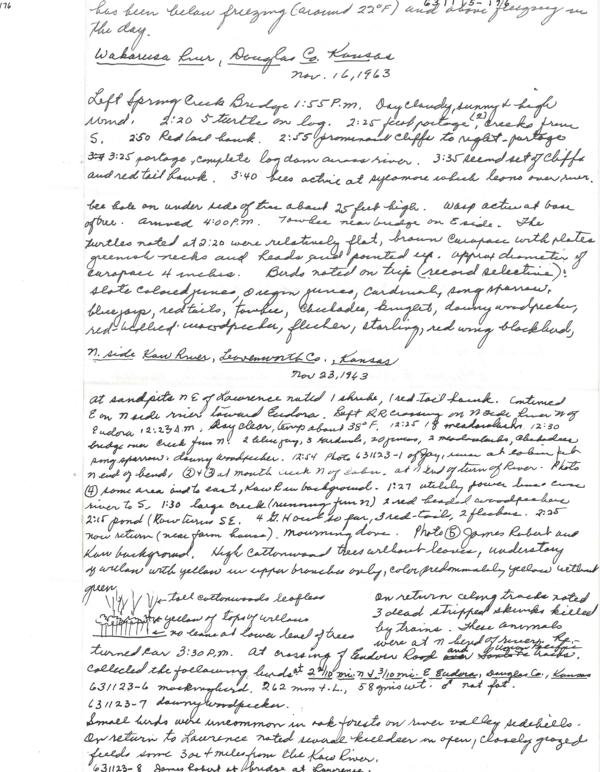 176
631115-176
has been below freezing (around 22°F) and above freezing in
the day.
Wakarusa River, Douglas Co. Kansas
Nov. 16, 1963
Left Spring Creek Bridge 1:55 P.M. Day cloudy, sunny & high
wind. 2:20 5-turtle on log. 2:25 portage (2) creeks from
S. 2:50 Red tail hawk. 2:55 prominent cliffs to right - portage
3:25 portage, complete log dam across river. 3:35 second set of cliffs
and red tail hawk. 3:40 bees active at sycamore which leans over river.
bee hole on under side of tree about 25 feet high. Wasp active at base
of tree. Arrived 4:00 P.M. Towhee near bridge on E side. The
turtles noted at 2:20 were relatively flat, brown carapace with plates
greenish necks and heads and pointed up. approx diameter of
carapace 4 inches. Birds noted on trip (record selective):
slate colored junco, Oregon junco, Cardinal, song sparrow,
bluejays, redtails, Towhee, Chickadee, kinglet, downy woodpecker,
red-bellied woodpecker, flicker, starling, red wing blackbird,
N. side Kaw River, Leavenworth Co., Kansas
Nov 23, 1963
at sandpits NE of Lawrence noted 1 shrike, 1 red-tail hawk. Continued
E on N side river toward Eudora. Left RR Crossing on N side River N of
Eudora 12:23 P.M. Day clear, temp about 38°F. 12:25 18 meadowlarks. 12:30
bridge over creek from N. 2 blue jay, 3 Cardinals, 20 juncos, 2 meadowlarks, chickadees
song sparrow. downy woodpecker. 12:54 Photo 631123-1 of Jay, river at cabin
N end of bend, (2) & (3) at mouth creek N of cabin. at N end of turn of River. Photo
(4) same area and to east, Kaw River background. 1:27 utility power lines cross
river to S. 1:30 large creek (running from N) 2 red headed woodpeckers
2:15 pond (Kaw turns SE. 4 G. H owls so far, 3 red-tail, 2 flickers. 2:25
now return (near farm house). Mourning dove. Photo (5) James Robert and
Kaw background. High Cottonwood trees without leaves, understory
of willow with yellow in upper branches only, color predominately yellow without
green
tall cottonwoods leafless
yellow of top of willows
no leaves at lower level of trees
On return along tracks noted
3 dead stripped skunks killed
by trains. These animals
were at N bend of river.
turned car 3:30 P.M. At crossing of Eudora Road and Union Pacific tracks.
collected the following birds at 2 2/10 mi. N & 3/10 mi. E Eudora, Douglas Co., Kansas
631123-6 mockingbird. 262 mm t.L., 58 gms wt. ♂ not fat.
631123-7 downy woodpecker.
Small birds were uncommon in oak forests on river valley sidehills.
On return to Lawrence noted several killdeer in open, closely grazed
fields some 3 or 4 miles from the Kaw River.
631123-8 James Robert at bridge at Lawrence